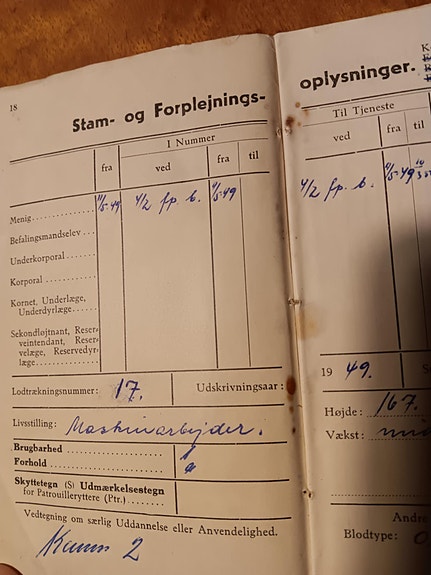 18
Stam- og Forplejnings-
I Nummer
fra ved fra til
Menig 11/5-49 4/2 fp. b. 11/5-49
Befalingsmandselev
Underkorporal
Korporal
Kornet, Underlæge,
Underdyrlæge
Sekondløjtnant, Reser-
veintendant, Reser-
velæge, Reservedyr-
læge
Lodtrækningsnummer: 17. Udskrivningsaar:
Livsstilling: Maskinarbejder.
Brugbarhed
Forhold
Skyttetegn (S) Udmærkelsestegn
for Patrouilleryttere (Ptr.)
Vedtegning om særlig Uddannelse eller Anvendelighed.
2
oplysninger.
Til Tjeneste
ved fra til
4/2 fp. b. 11/5-49
19 49.
Højde: 167.
Vækst:
Andre
Blodtype: O